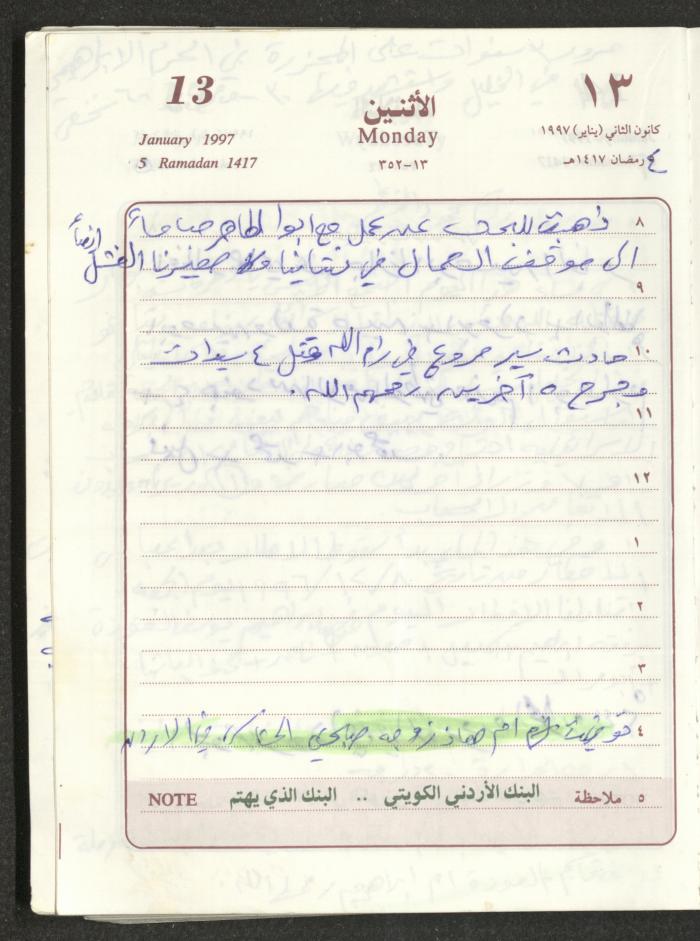 13
١٣
الأثنين
January 1997
Monday
كانون الثاني (يناير) ١٩٩٧
5 Ramadan 1417
١٣-٣٥٢
٤ رمضان ١٤١٧هـ
٨ ذهبت للبحث عن عمل مع ابو الطاهر صباحاً
الى موقف العمال في نتانيا و الفشل ايضاً
٩
١٠ حادث سير مروع في رام الله قتل ٤ سيدات
وجرح ٥ آخرين رحمهم الله.
١١
١٢
١
٢
٣
٤ توفيت ام زوجه صالحي الاردن
٥ ملاحظة
البنك الأردني الكويتي .. البنك الذي يهتم
NOTE